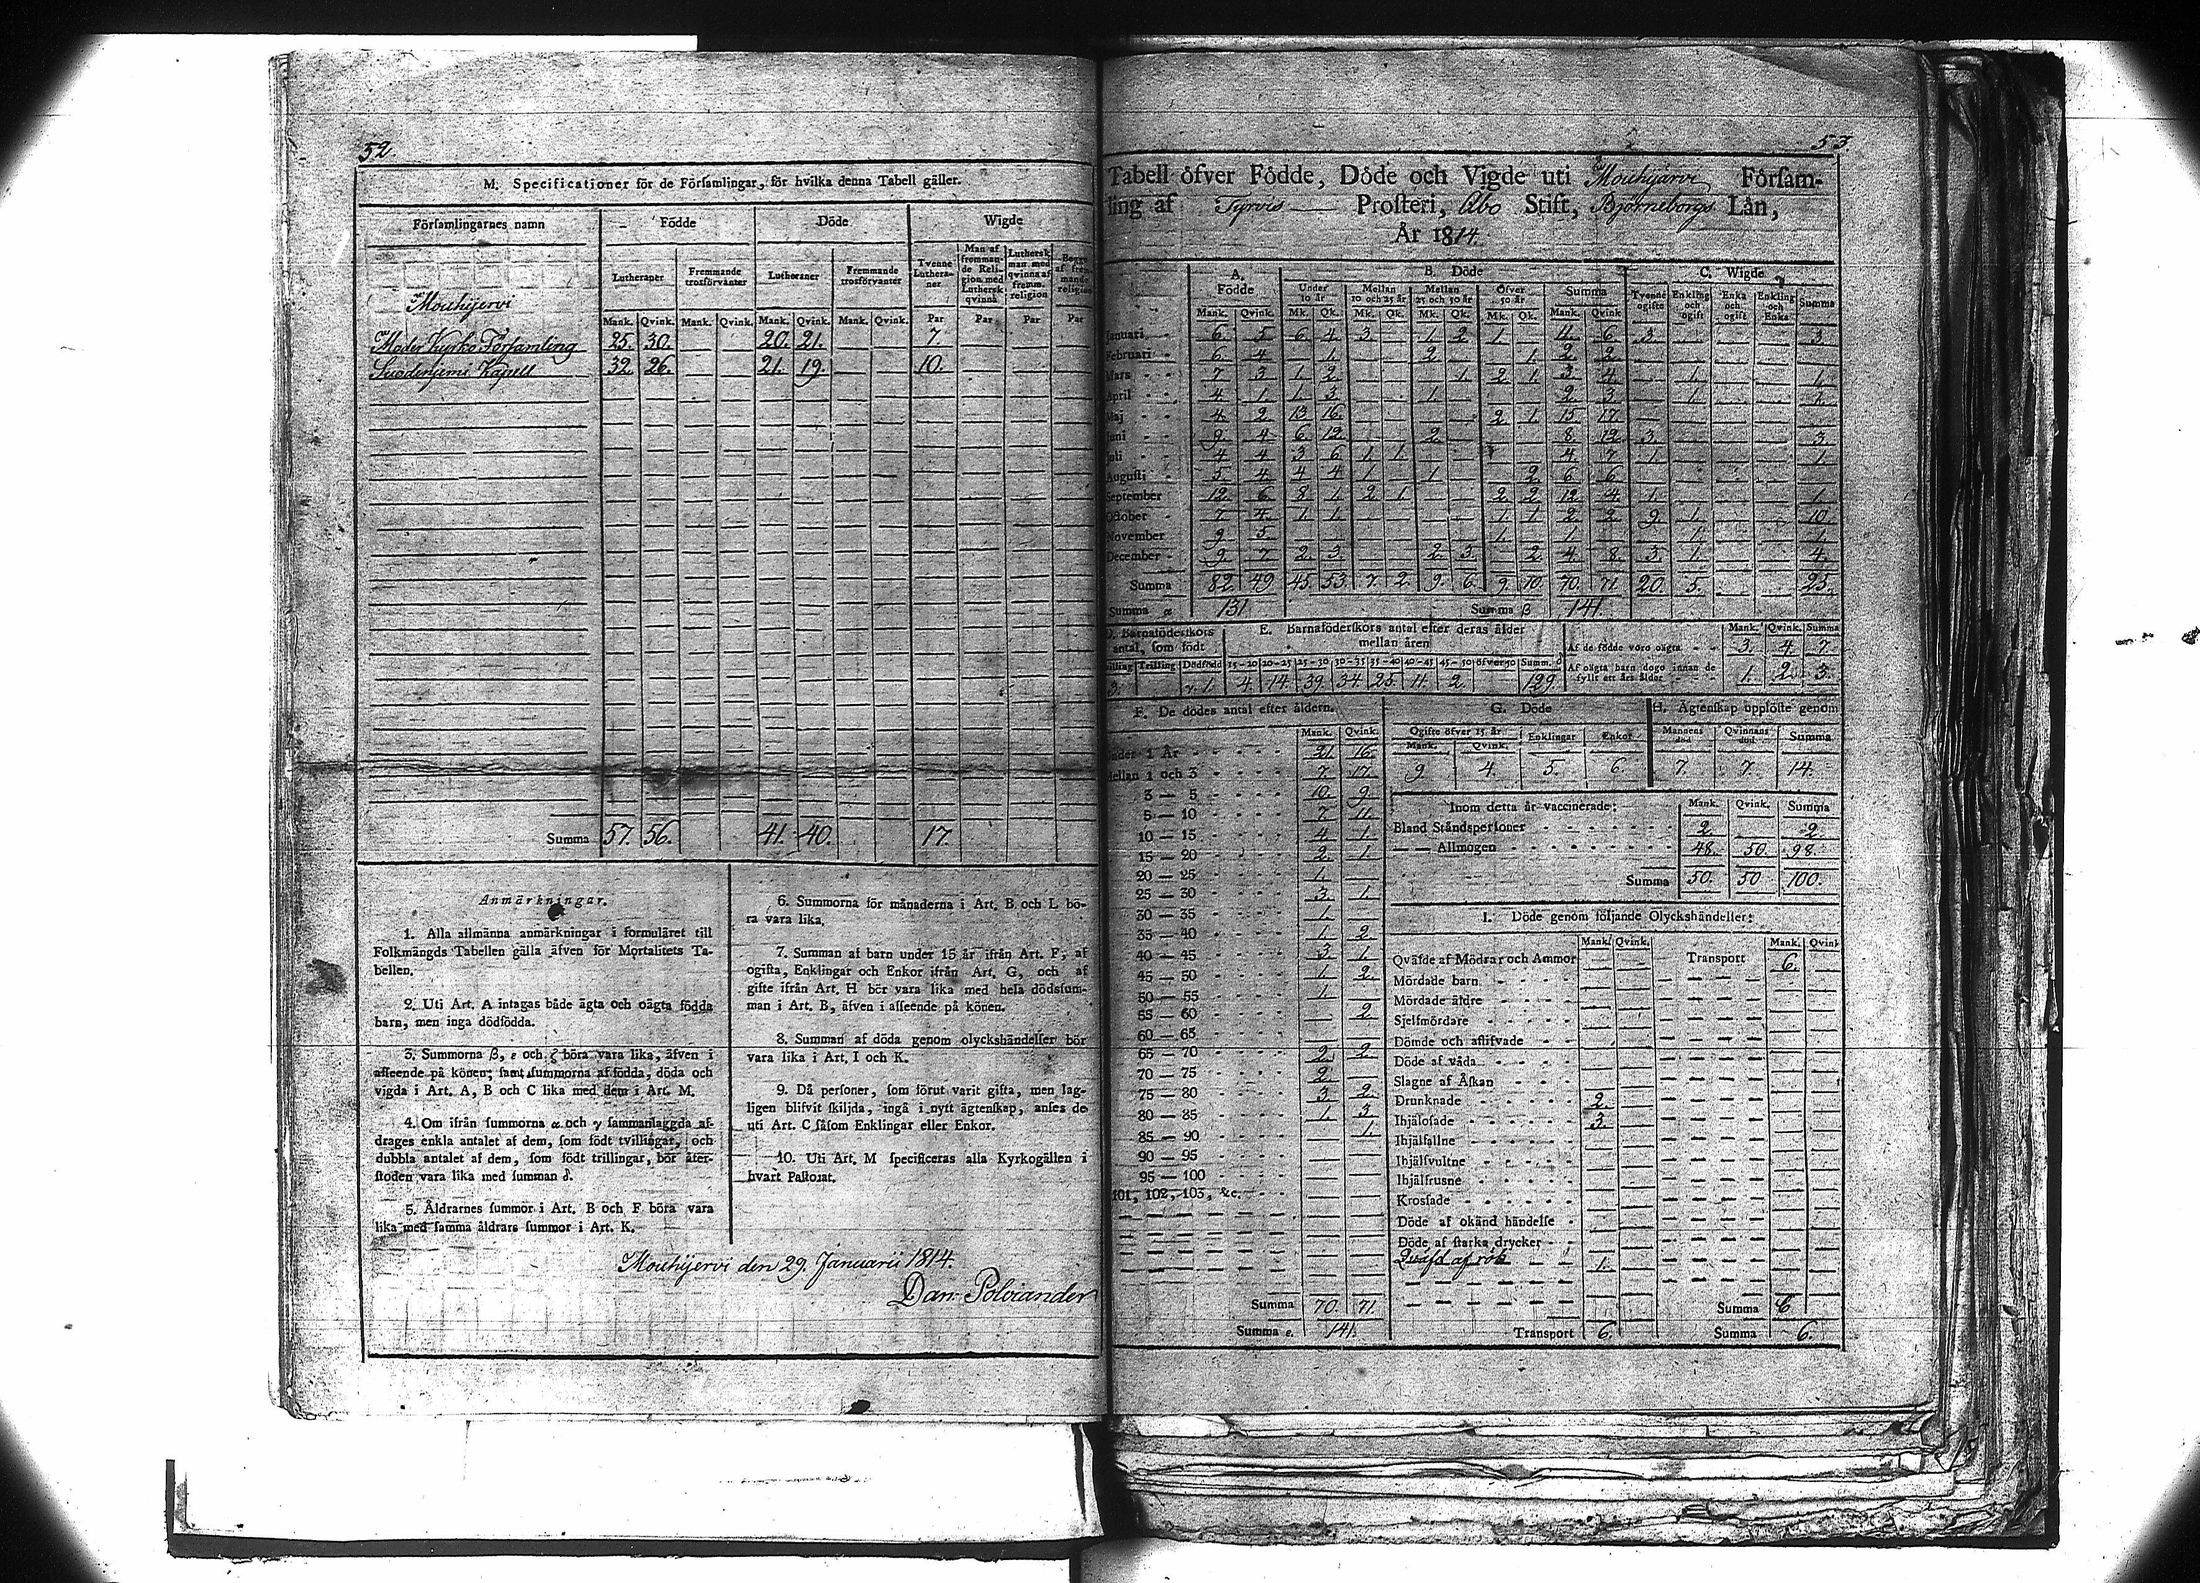 52.
M. Specificationer för de Församlingar, för hvilka denna Tabell gäller.
Församlingarnes namn Födde Döde Wigde
Lutheraner Fremmande trosförvanter Lutheraner Fremmande trosförvanter Tvenne Lutheraner Man af fremmande Religion med Luthersk qvinna Luthersk man med qvinna af fremm. religion Begge af fremmande religion
Mouhijervi
Mank. Qvink. Mank. Qvink. Mank. Qvink. Mank. Qvink. Par Par Par Par
Moder Kyrko Församling 25. 30. 20. 21. 7.
Suodenjemi Kapell 32. 26. 21. 19. 10.
Summa 57. 56. 41. 40. 17.
Anmärkningar.
1. Alla allmänna anmärkningar i formuläret till
Folkmängds Tabellen gälla äfven för Mortalitets Ta-
bellen.
2. Uti Art. A intagas både ägta och oägta födda
barn, men inga dödfödda.
3. Summorna β, ε och ζ böra vara lika, äfven i
afseende på könen; samt summorna af födda, döda och
vigda i Art. A, B och C lika med dem i Art. M.
4. Om ifrån summorna α och γ sammanlaggda af-
drages enkla antalet af dem, som födt tvillingar, och
dubbla antalet af dem, som födt trillingar, bör åter-
stoden vara lika med summan δ.
5. Åldrarnes summor i Art. B och F böra vara
lika med samma åldrars summor i Art. K.
6. Summorna för månaderna i Art. B och L bö-
ra vara lika.
7. Summan af barn under 15 år ifrån Art. F, af
ogifta, Enklingar och Enkor ifrån Art. G, och af
gifte ifrån Art. H bör vara lika med hela dödssum-
man i Art. B, äfven i afseende på könen.
8. Summan af döda genom olyckshändelser bör
vara lika i Art. I och K.
9. Då personer, som förut varit gifta, men lag-
ligen blifvit skiljda, ingå i nytt ägtenskap, anses de
uti Art. C såsom Enklingar eller Enkor.
10. Uti Art. M specificeras alla Kyrkogällen i
hvart Pastorat.
Mouhijervi den 29. Januarii 1814.
Dan: Polviander
53
Tabell öfver Födde, Döde och Vigde uti Mouhijärvi Försam-
ling af Tyrvis Prosteri, Åbo Stift, Björneborgs Län,
År 1814.
A. Födde B. Döde C. Wigde
Under 10 år Mellan 10 och 25 år Mellan 25 och 50 år Öfver 50 år Summa Tvenne ogifte Enkling och ogift Enka och ogift Enkling och Enka Summa
Mank. Qvink. Mk. Qk. Mk. Qk. Mk. Qk. Mk. Qk. Mank. Qvink.
Januari 6. 5. 6. 4. 3. 1. 2. 1. 11. 6. 3. 3.
Februari 6. 4. 1. 2. 1. 2. 2.
Mars 7. 3. 1. 2. 1. 2. 1. 3. 4. 1. 1.
April 4. 1. 1. 3. 1. 2. 3. 1. 1.
Maj 4. 2. 13. 16. 2. 1. 15. 17.
Juni 9. 4. 6. 12. 2. 8. 12. 3. 3.
Juli 4. 4. 3. 6. 1. 1. 4. 7. 1. 1.
Augusti 5. 4. 4. 4. 1. 1. 2. 6. 6.
September 12. 6. 8. 1. 2. 1. 2. 2. 12. 4. 1. 1.
October 7. 4. 1. 1. 1. 1. 2. 2. 9. 1. 10.
November 9. 5. 1. 1. 1. 1.
December 9. 7. 2. 3. 2. 3. 2. 4. 8. 3. 1. 4.
Summa 82. 49. 45. 53. 7. 2. 9. 6. 9. 10. 70. 71. 20. 5. 25.
Summa α 131. Summa β 141.
D. Barnaföderskors antal, som födt
E. Barnaföderskors antal efter deras ålder mellan åren
Mank. Qvink. Summa
Af de födde voro oägta 3. 4. 7.
Af oägta barn dogo innan de fyllt ett års ålder 1. 2. 3.
Tvilling Trilling Dödfödd 15-20 20-25 25-30 30-35 35-40 40-45 45-50 öfver 50 Summ. δ
3. γ 1. 4. 14. 39. 34. 25. 11. 2. 129.
F. De dödes antal efter åldern.
Mank. Qvink.
Under 1 År 21. 16.
Mellan 1 och 3 7. 17.
3 — 5 10. 9.
5 — 10 7. 11.
10 — 15 4. 1.
15 — 20 2. 1.
20 — 25 1.
25 — 30 3. 1.
30 — 35 1.
35 — 40 1. 2.
40 — 45 3. 1.
45 — 50 1. 2.
50 — 55 1.
55 — 60 2.
60 — 65
65 — 70 2. 2.
70 — 75 2.
75 — 80 3. 2.
80 — 85 1. 3.
85 — 90 1.
90 — 95
95 — 100
101, 102, 103, &c.
Summa 70. 71.
Summa ε. 141.
G. Döde
Ogifte öfver 15 år Enklingar Enkor
Mank. Qvink.
9. 4. 5. 6.
H. Ägtenskap upplöste genom
Mannens död Qvinnans död Summa
7. 7. 14.
Inom detta år vaccinerade: Mank. Qvink. Summa
Bland Ståndspersoner 2. 2.
— — Allmogen 48. 50. 98.
Summa 50. 50. 100.
I. Döde genom följande Olyckshändelser:
Mank. Qvink. Mank. Qvink
Qväfde af Mödrar och Ammor Transport 6.
Mördade barn
Mördade äldre
Sjelfmördare
Dömde och aflifvade
Döde af våda
Slagne af Åskan
Drunknade 2.
Ihjälosade 3.
Ihjälfallne
Ihjälsvultne
Ihjälfrusne
Krossade
Döde af okänd händelse
Döde af starka drycker
Qväfd af rök 1.
Summa 6
Transport 6. Summa 6.